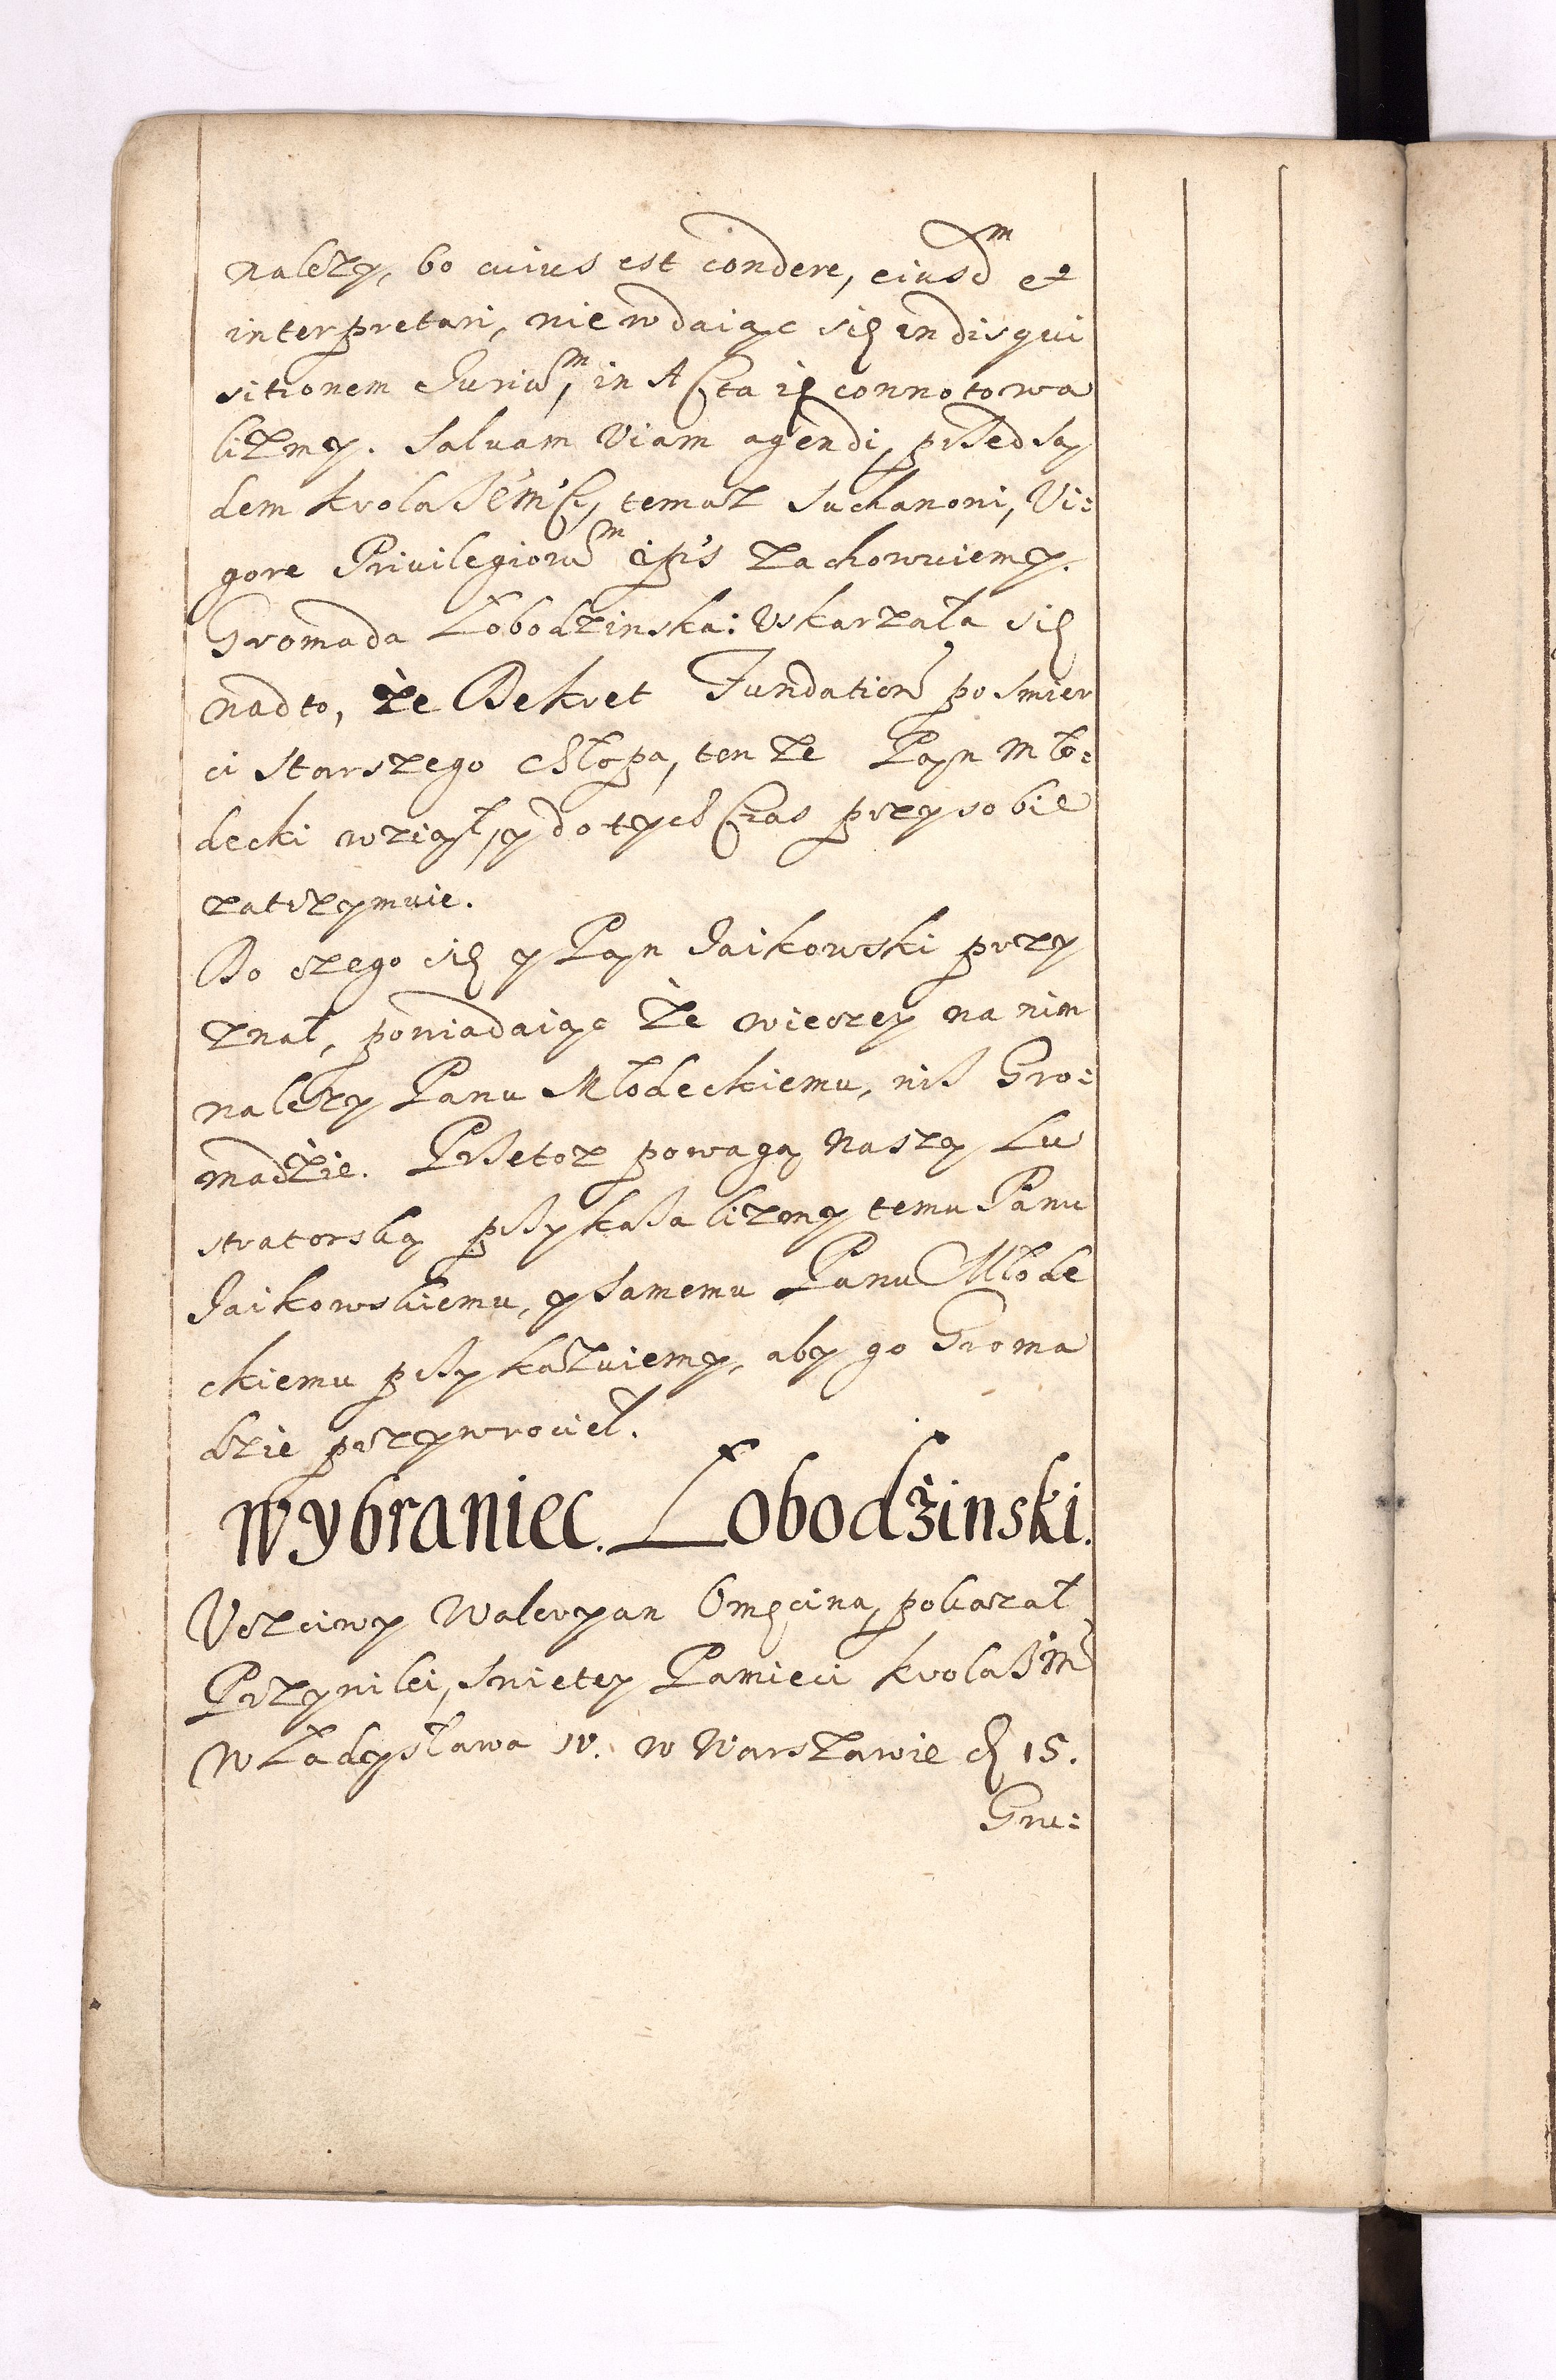 należy, bo cuius est condere, eiusdᵐ et
interpretari, nie wdaiąc się in disqui
sitionem Juriuᵐ, in Acta ię connotowa
lizmy. Saluam Viam agendi, przed Są
dem Krola JéMśći, temuż Suchanoni, Vi:
gore Privilegioruᵐ ip's zachowuiemy.
Gromada Łobodzinska: Uskarzała się
nadto, że Dekret Fundation̄ po smier
ci starszego chłopa, ten że Pąn Mło:
decki wziął, y do tych Czas przy sobie
zatrzymuie.
Do czego się y Pąn Jaikowski przy
znał, powiadaiąc że wieczey na nim
należy Panu Młodeckiemu, niż Gro:
madzie. Przetoz powagą naszą Lu
stratorską przykazalizmy temu Panu
Jaikowskiemu, y samemu Panu Młode
ckiemu przykazuiemy, aby go Groma
dzie przywrocieł.
Wybraniec. Łobodżinski.
Uczciwy Waleryan Omęcina, pokazał
Przywilei, Swietey Pamieci Krola JM
Władysława IV. w Warszawie d 15.
Gru: